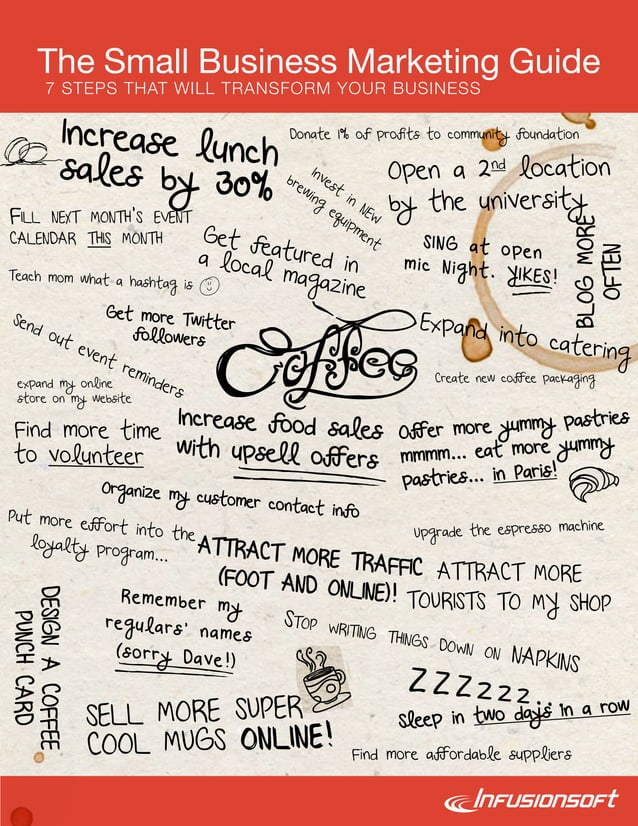 The Small Business Marketing Guide
7 STEPS THAT WILL TRANSFORM YOUR BUSINESS
Increase lunch
sales by 30%
Donate 1% of profits to community foundation
Invest in NEW
brewing equipment
Open a 2nd location
by the university
FILL NEXT MONTH'S EVENT
CALENDAR THIS MONTH
Get featured in
a local magazine
SING at open
mic Night. YIKES!
BLOG MORE
OFTEN
Teach mom what a hashtag is
Get more Twitter
followers
Send out event reminders
Coffee
Expand into catering
expand my online
store on my website
Create new coffee packaging
Find more time
to volunteer
Increase food sales
with upsell offers
Offer more yummy pastries
mmmm... eat more yummy
pastries... in Paris!
Organize my customer contact info
Put more effort into the
loyalty program...
Upgrade the espresso machine
ATTRACT MORE TRAFFIC
(FOOT AND ONLINE)!
ATTRACT MORE
TOURISTS TO MY SHOP
DESIGN A COFFEE
PUNCH CARD
Remember my
regulars' names
(sorry Dave!)
STOP WRITING THINGS DOWN ON NAPKINS
ZZZZZZ...
Sleep in two days in a row
SELL MORE SUPER
COOL MUGS ONLINE!
Find more affordable suppliers
Infusionsoft